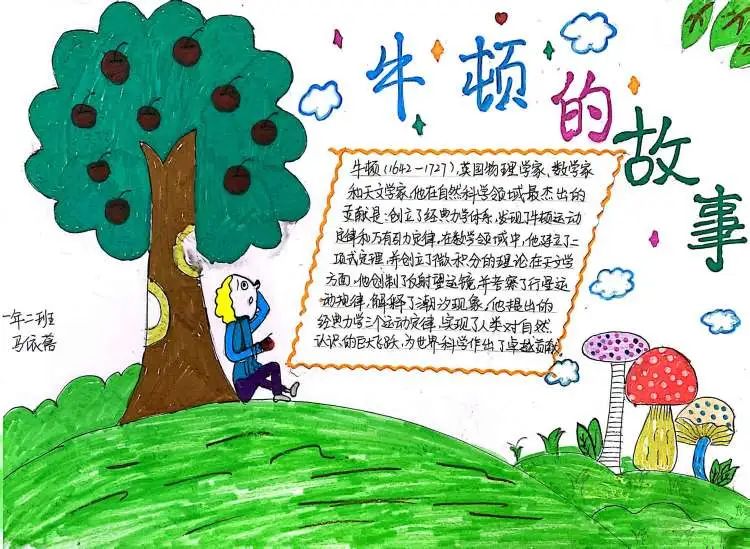 牛顿的故事
牛顿(1642-1727),英国物理学家、数学家
和天文学家,他在自然科学领域最杰出的
贡献是:创立了经典力学体系,发现了牛顿运动
定律和万有引力定律。在数学领域中,他建立了二
项式定理,并创立了微积分的理论在天文学
方面,他创制了反射望远镜,并考察了行星运
动规律,解释了潮汐现象。他提出的
经典力学三个运动定律,实现了人类对自然
认识的巨大飞跃,为世界科学作出了卓越贡献
一年二班
马依蒞